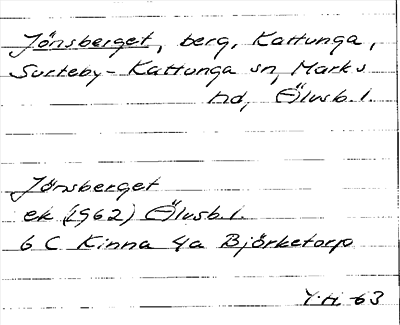 Jönsberget, berg, Kattunga,
Surteby-Kattunga sn, Marks
hd, Älvsb. l.
Jönsberget
ek (1962) Älvsb. l.
6 C Kinna 4a Björketorp
Y.H. -63